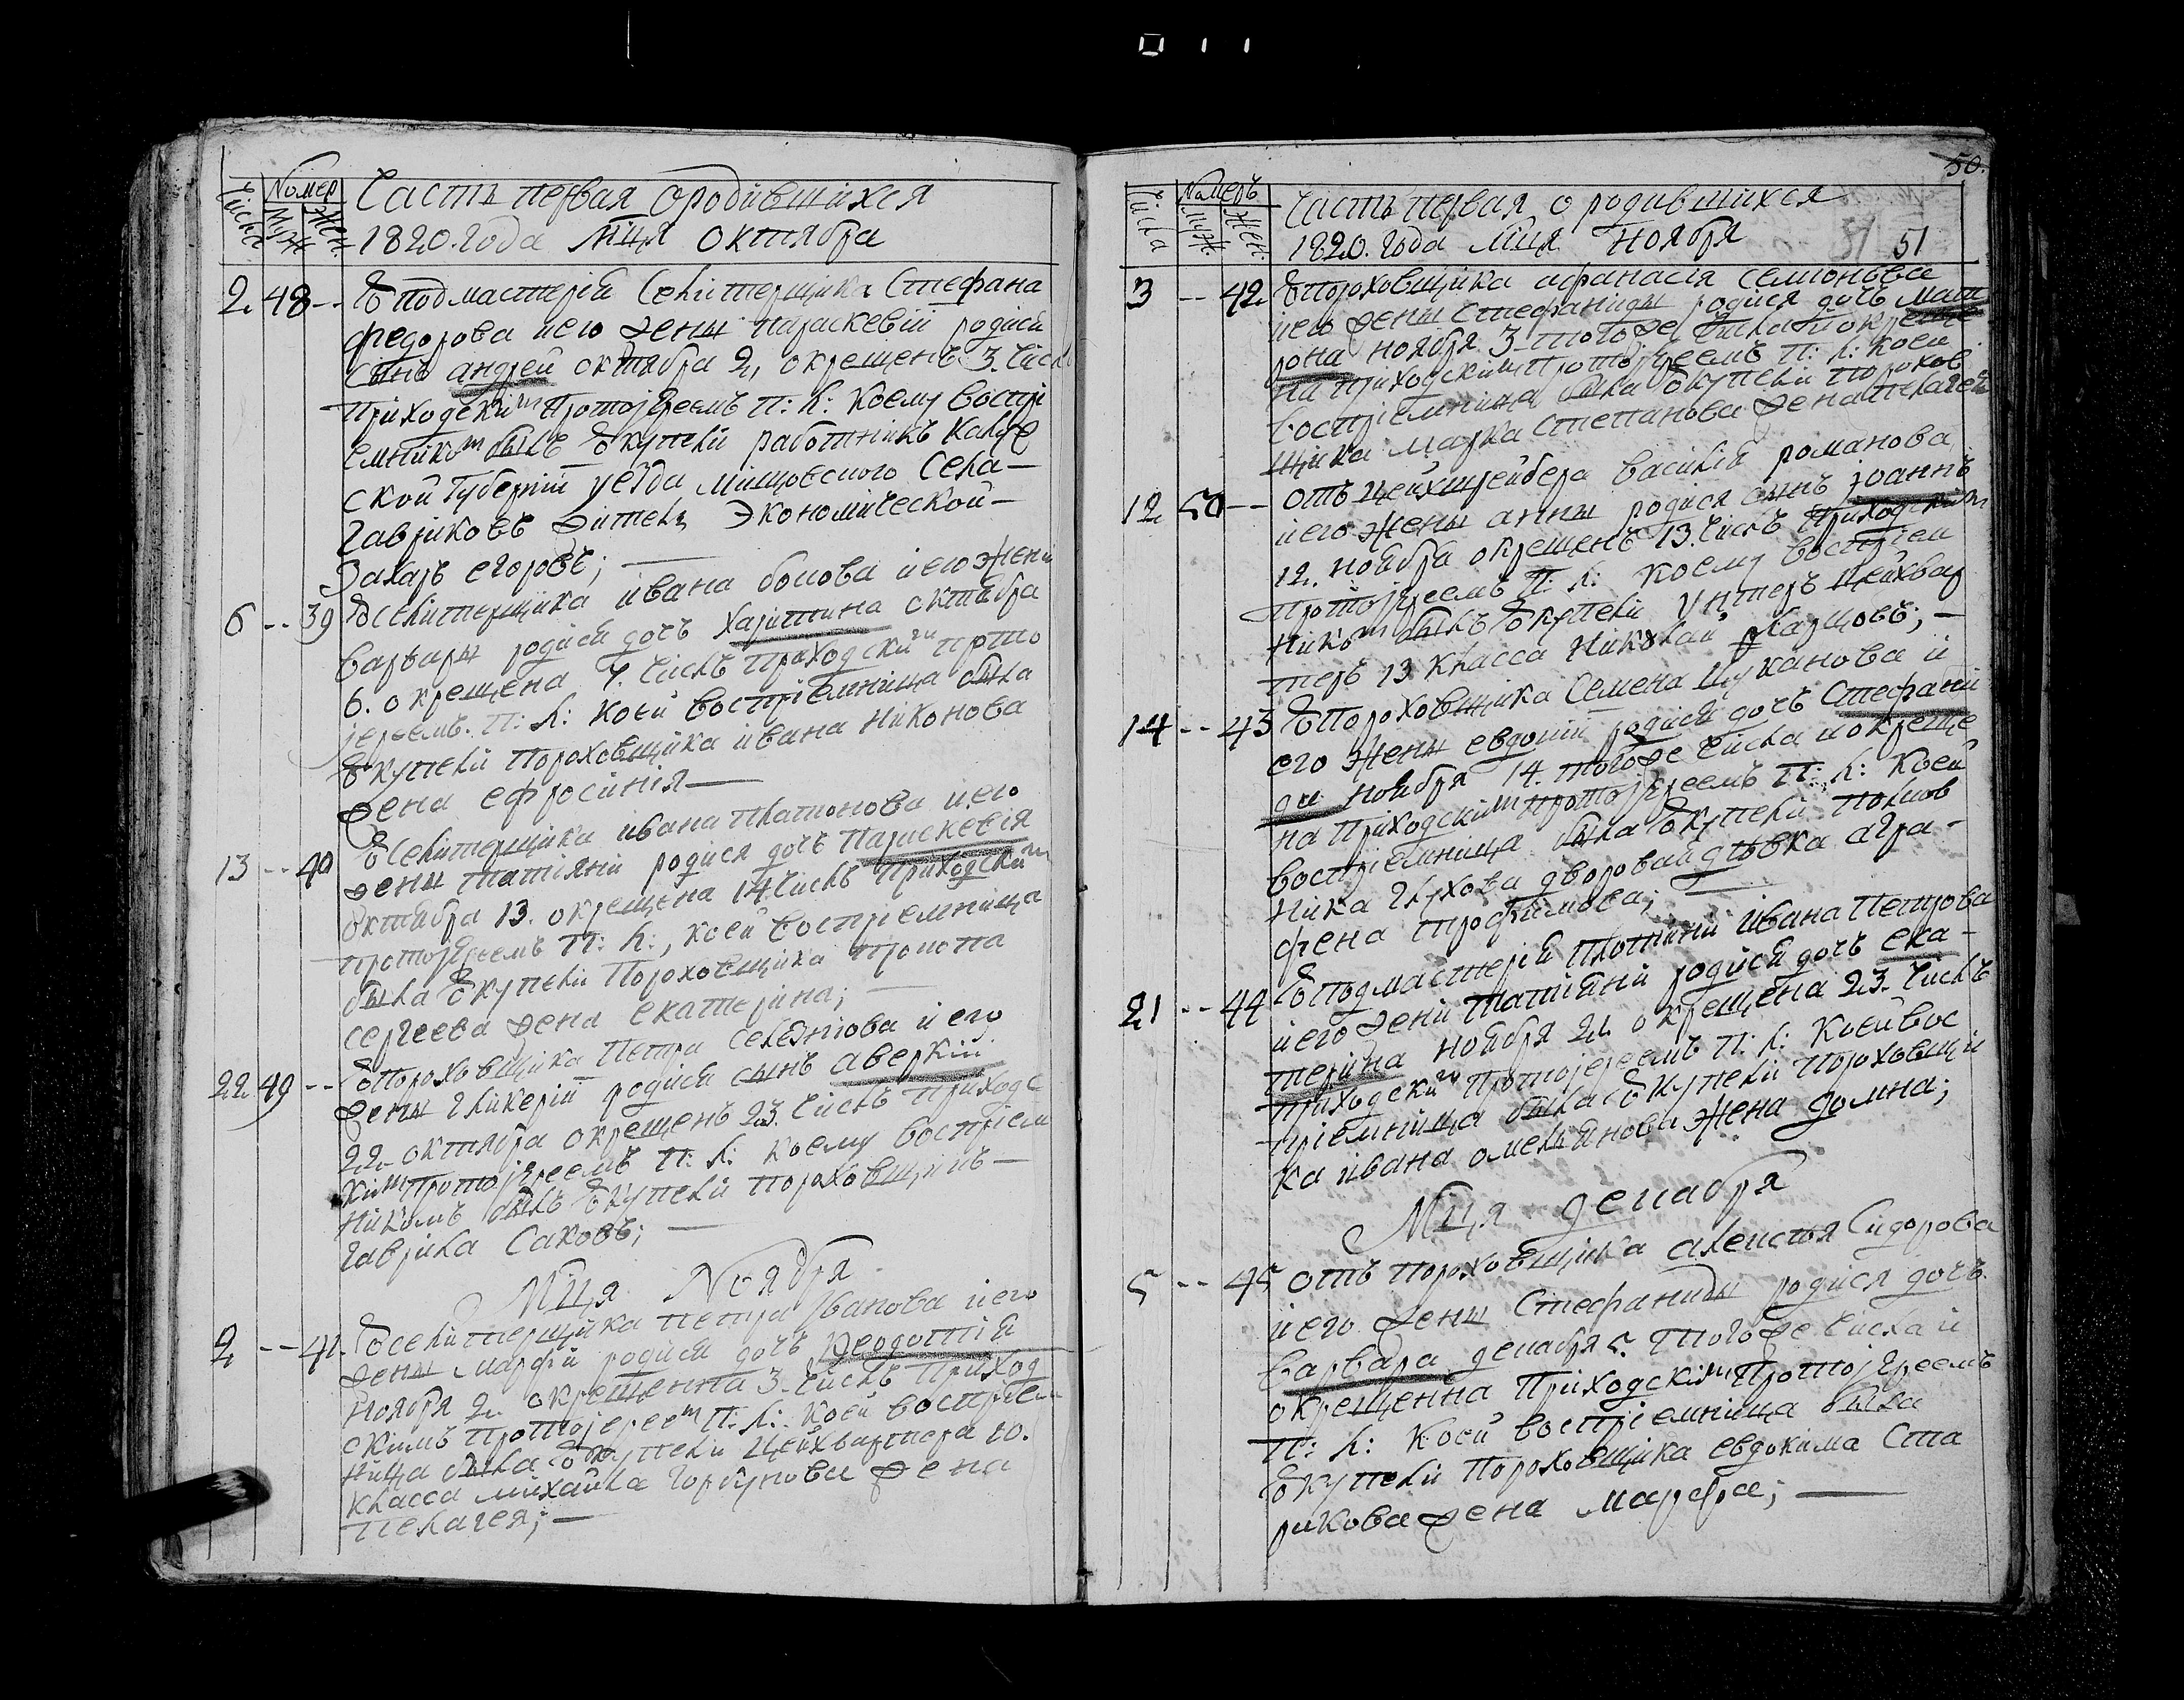 Числа
Номер
Муж.
Жен.
Часть первая о родившихся
1820. года Мца октября
2. 48 -- У подмастерій Селитерщика Стефана
федорова и его жены параскевіи родися
сынъ андрей октября 2, окрещенъ 3. числ
приходским протоіереемъ П: Л: коему воспрі
емником былъ ѿ купели работникъ калуж
ской Губерніи уезда мещовского Села
Гавриковъ житель Экономической
Захаръ егоровъ;
6 -- 39 У селитерщика ивана бокова и его жены
варвары родися дочъ харитина октября
6. окрещена 7. числъ приходским прото
іереемъ. П: Л: коей воспріемница была
ѿ купели пороховщика ивана никонова
жена ефросинія
13 -- 40 У селитерщика ивана платонова и его
жены татіяны родися дочъ Параскевія
октября 13. окрещена 14 числъ приходским
протоіереемъ П: Л:, коей воспріемница
была ѿ купели пороховщика
сергеева жена екатерина;
22 49 -- У пороховщика Петра Селезнова и его
жены гликеріи родися сынъ аверкій
22 октября окрещенъ 23. числъ приходс
кимъ протоіереемъ П: Л: коему воспріем
никомъ былъ ѿ купели пороховщикъ
гаврила Саковъ;
Мца Ноября
2 -- 41. У селитерщика петра Иванова и его
жены марфы родися дочъ Феодотія
ноября 2. окрещенна 3. числъ приход
скимъ протоіереем П: Л: коей воспріем
ница была ѿ купели цейхвартера 10.
класса михайла горбунова жена
пелагея;
50.
51 51
Числа
Номеръ
Муж.
Жен.
Часть первая о родившихся
1820. года Мца Ноября
3 -- 42. У пороховщика афанасія семіонова
и его жены Стефаниды родися дочъ мат
рона ноября 3. того же числа и окреще
на приходским протоіереемъ П: Л: коей
воспріемница была ѿ купели порохов
щика марка степанова жена пелагея
12 50 -- отъ цейхшрейбера василія романова
и его жены анны родися сынъ іоаннъ
12. ноября окрещенъ 13. числъ приходским
протоіереемъ П: Л: коему воспріем
ником былъ ѿ купели унтеръ цейхвар
теръ 13 класса николай
14 -- 43 У пороховщика Семена Цуканова и
его жены евдокіи родися дочъ Стефани
да ноября 14. того же числа и окреще
на приходским протоіереемъ П: Л: коей
воспріемница была ѿ купели полков
ника глухова дворовая девка агра-
фена трофимова;
21 -- 44 У подмастерія плотни ивана Петрова
и его жены татіяны родися дочъ ека-
терина ноября 21. окрещена 23. числъ
приходским протоіереемъ П: Л: коей вос
пріемница была ѿ купели пороховщи
ка ивана омельянова жена домна;
Мца декабря
5 -- 45 отъ пороховщика алексія Сидорова
и его жены Стефаниды родися дочъ
варвара декабря 5. того же числа и
окрещенна приходским протоіереемъ
П: Л: коей воспріемница была
ѿ купели пороховщика евдокима Ста
рикова жена марфа;